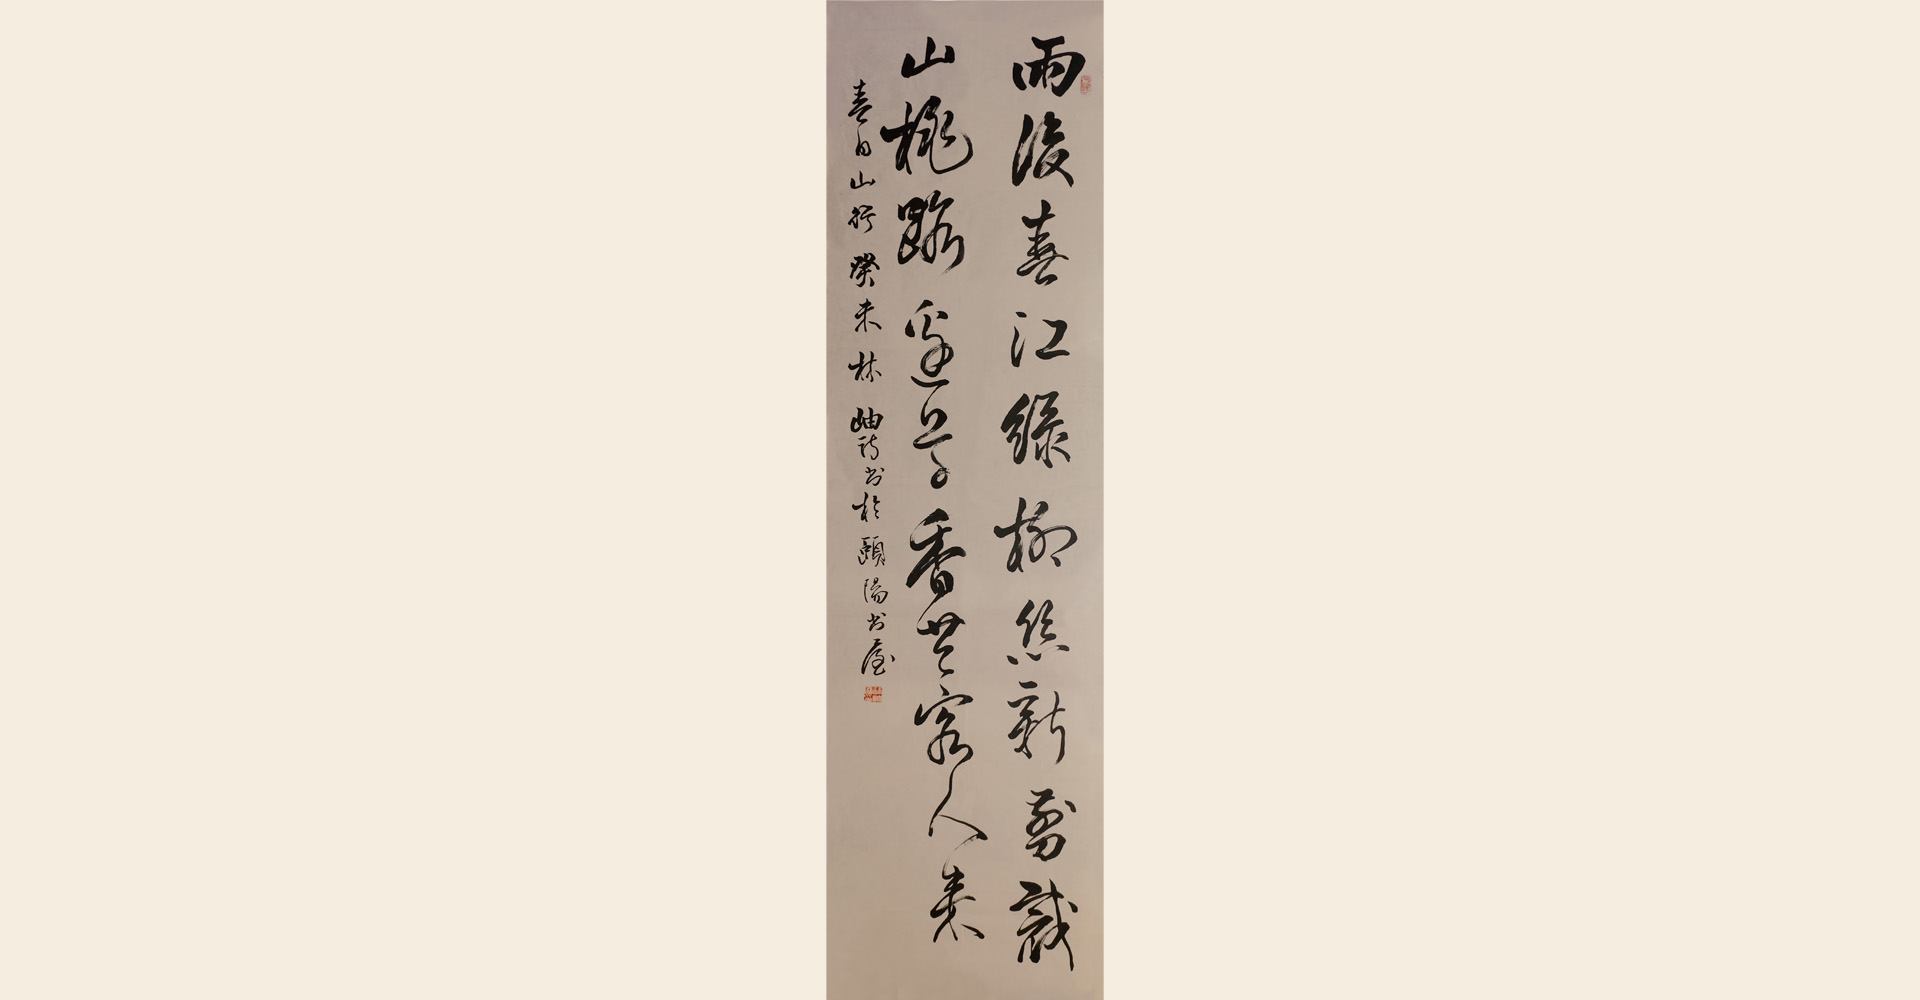 雨後春江綠柳絲新剪裁
山桃路邊早香共客人來
春日山行 癸未 林岫詩書於頤陽書屋